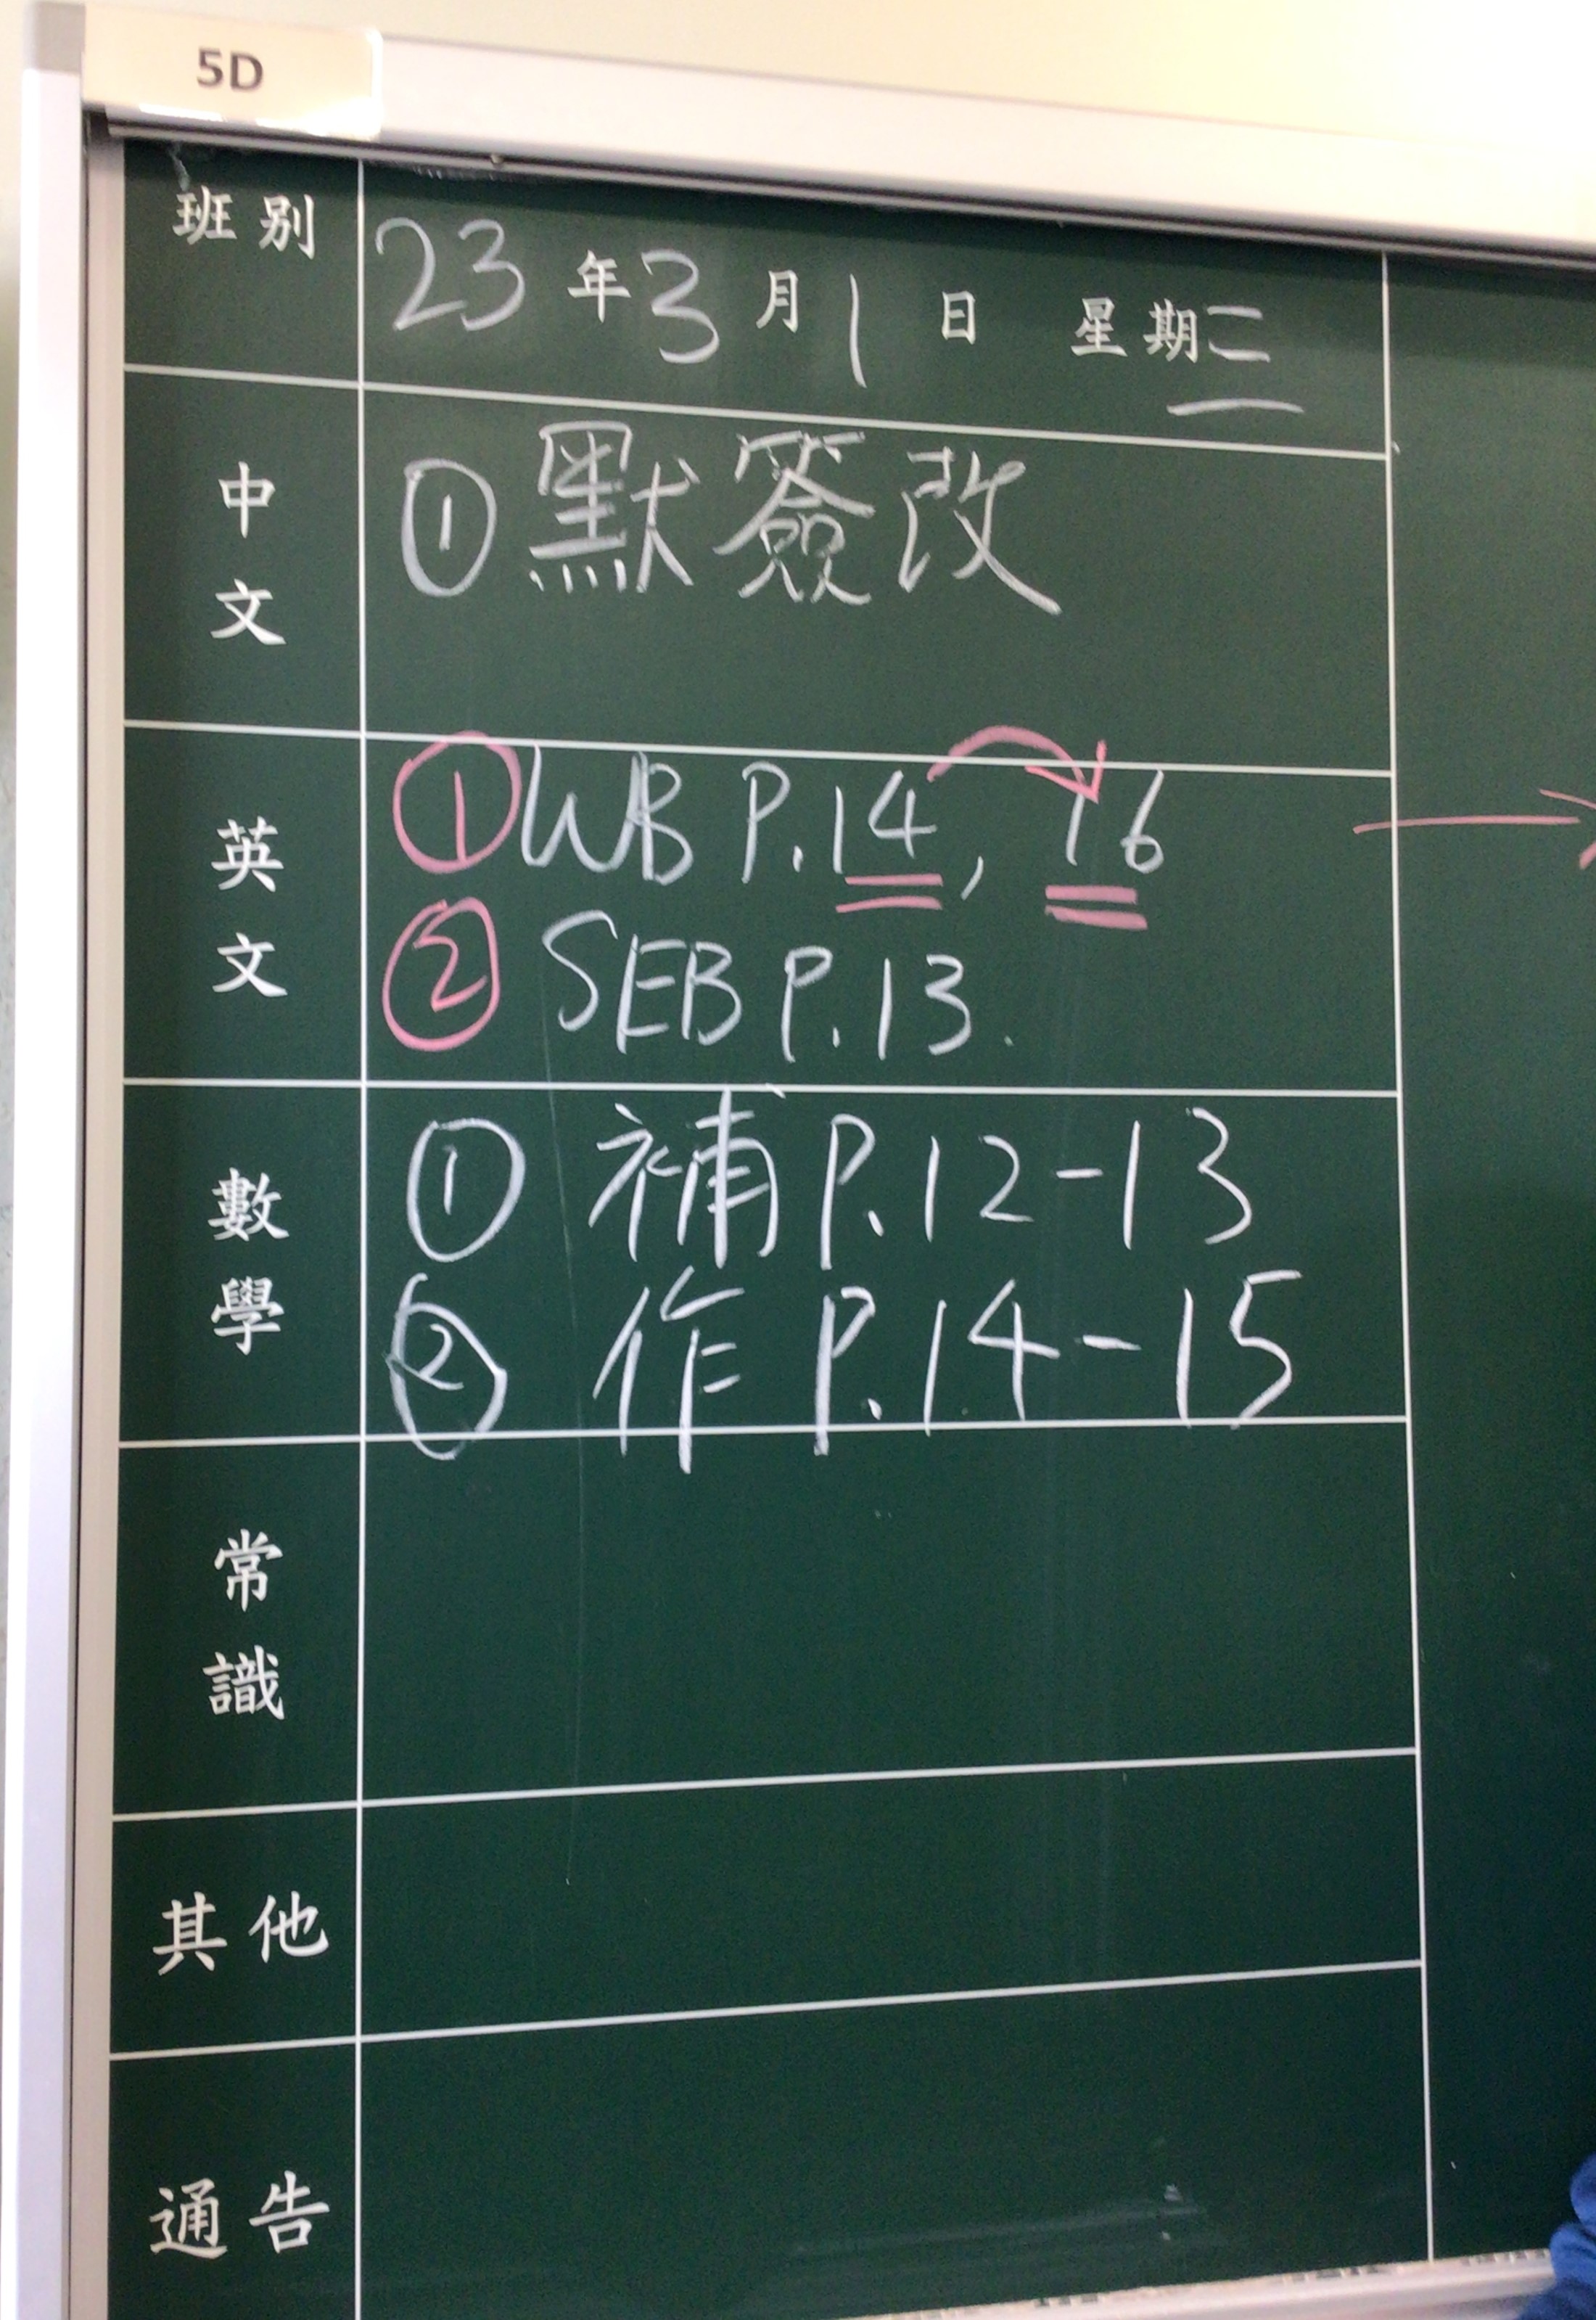 5D
班別 23年3月1日 星期三
中文 ①默簽改
英文 ①WB P.14, 16
②SEB P.13.
數學 ①補P.12-13
②作P.14-15
常識
其他
通告